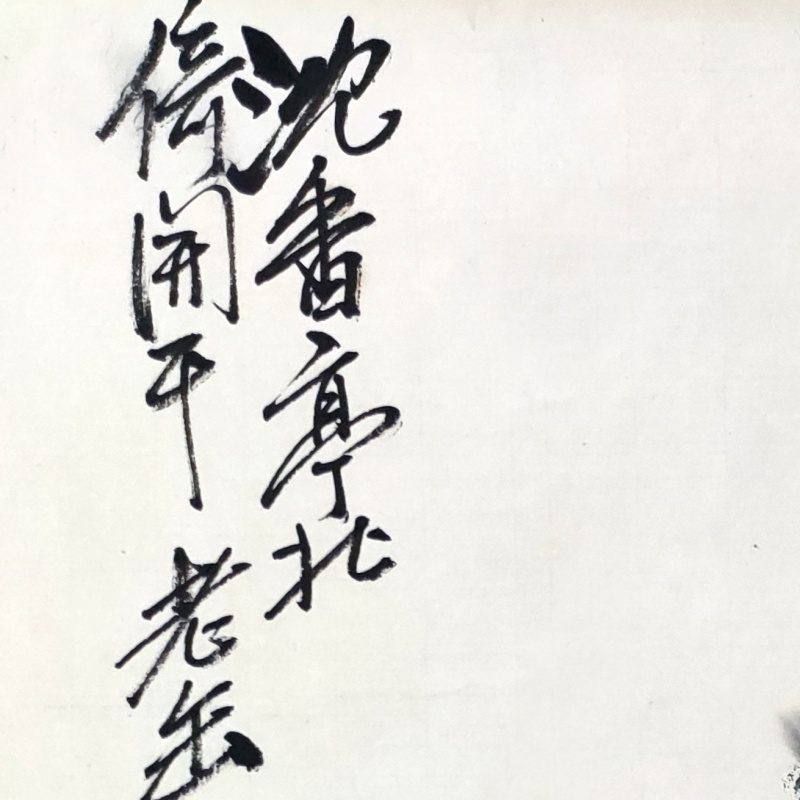 沈香亭北
倚闌干 老缶